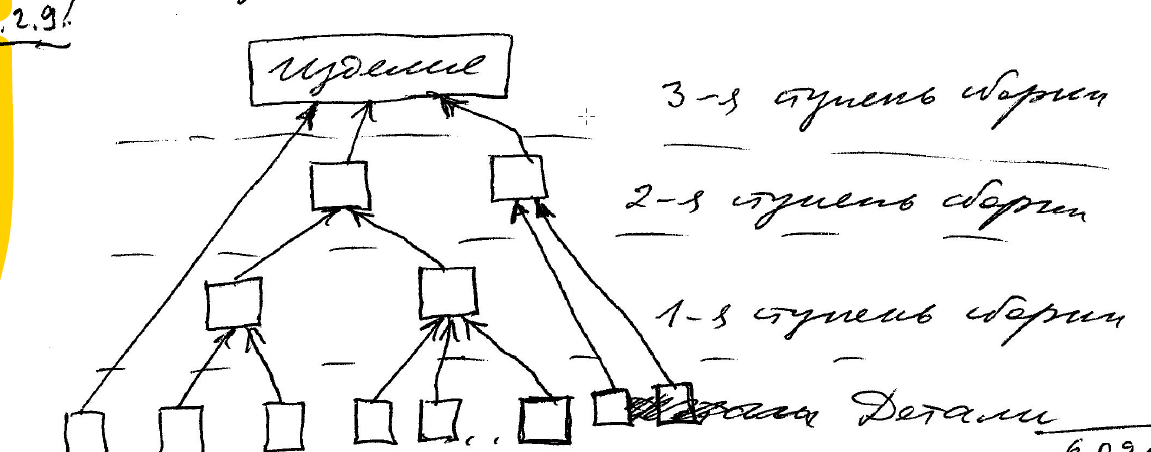 .2.9!
изделие
3-я ступень сборки
2-я ступень сборки
1-я ступень сборки
Детали